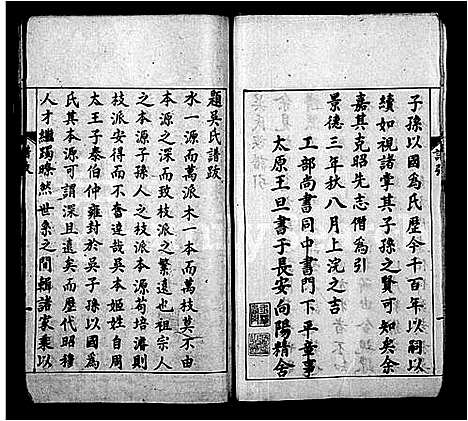 子孫以國為氏歷今千百年以祠以
續如視諸掌其子孫之賢可知矣余
嘉其克昭先志僭為引
景德三年秋八月上浣之吉
工部尚書同中書門下平章事
太原王旦書于長安向陽精舍
題吳氏譜跋
水一源而萬派木一本而萬枝莫不由
本源之深而致枝派之繁遠也祖宗人
之本源子孫人之枝派本源茍培濬則
枝派安得而不奮達哉吳本姬姓自周
太王子泰伯仲雍封於吳子孫以國為
氏其本源可謂深且遠矣而歷代昭穆
人才繼躅瞭然世系之間輯諸家乘以